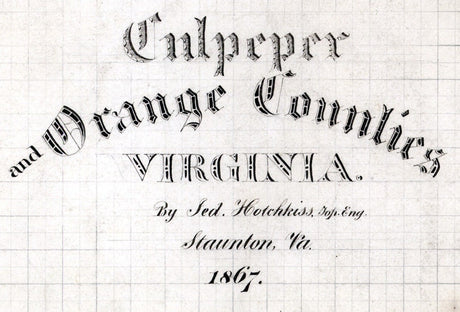 Culpeper
and Orange Counties
VIRGINIA.
By Jed. Hotchkiss, Top. Eng.
Staunton, Va.
1867.